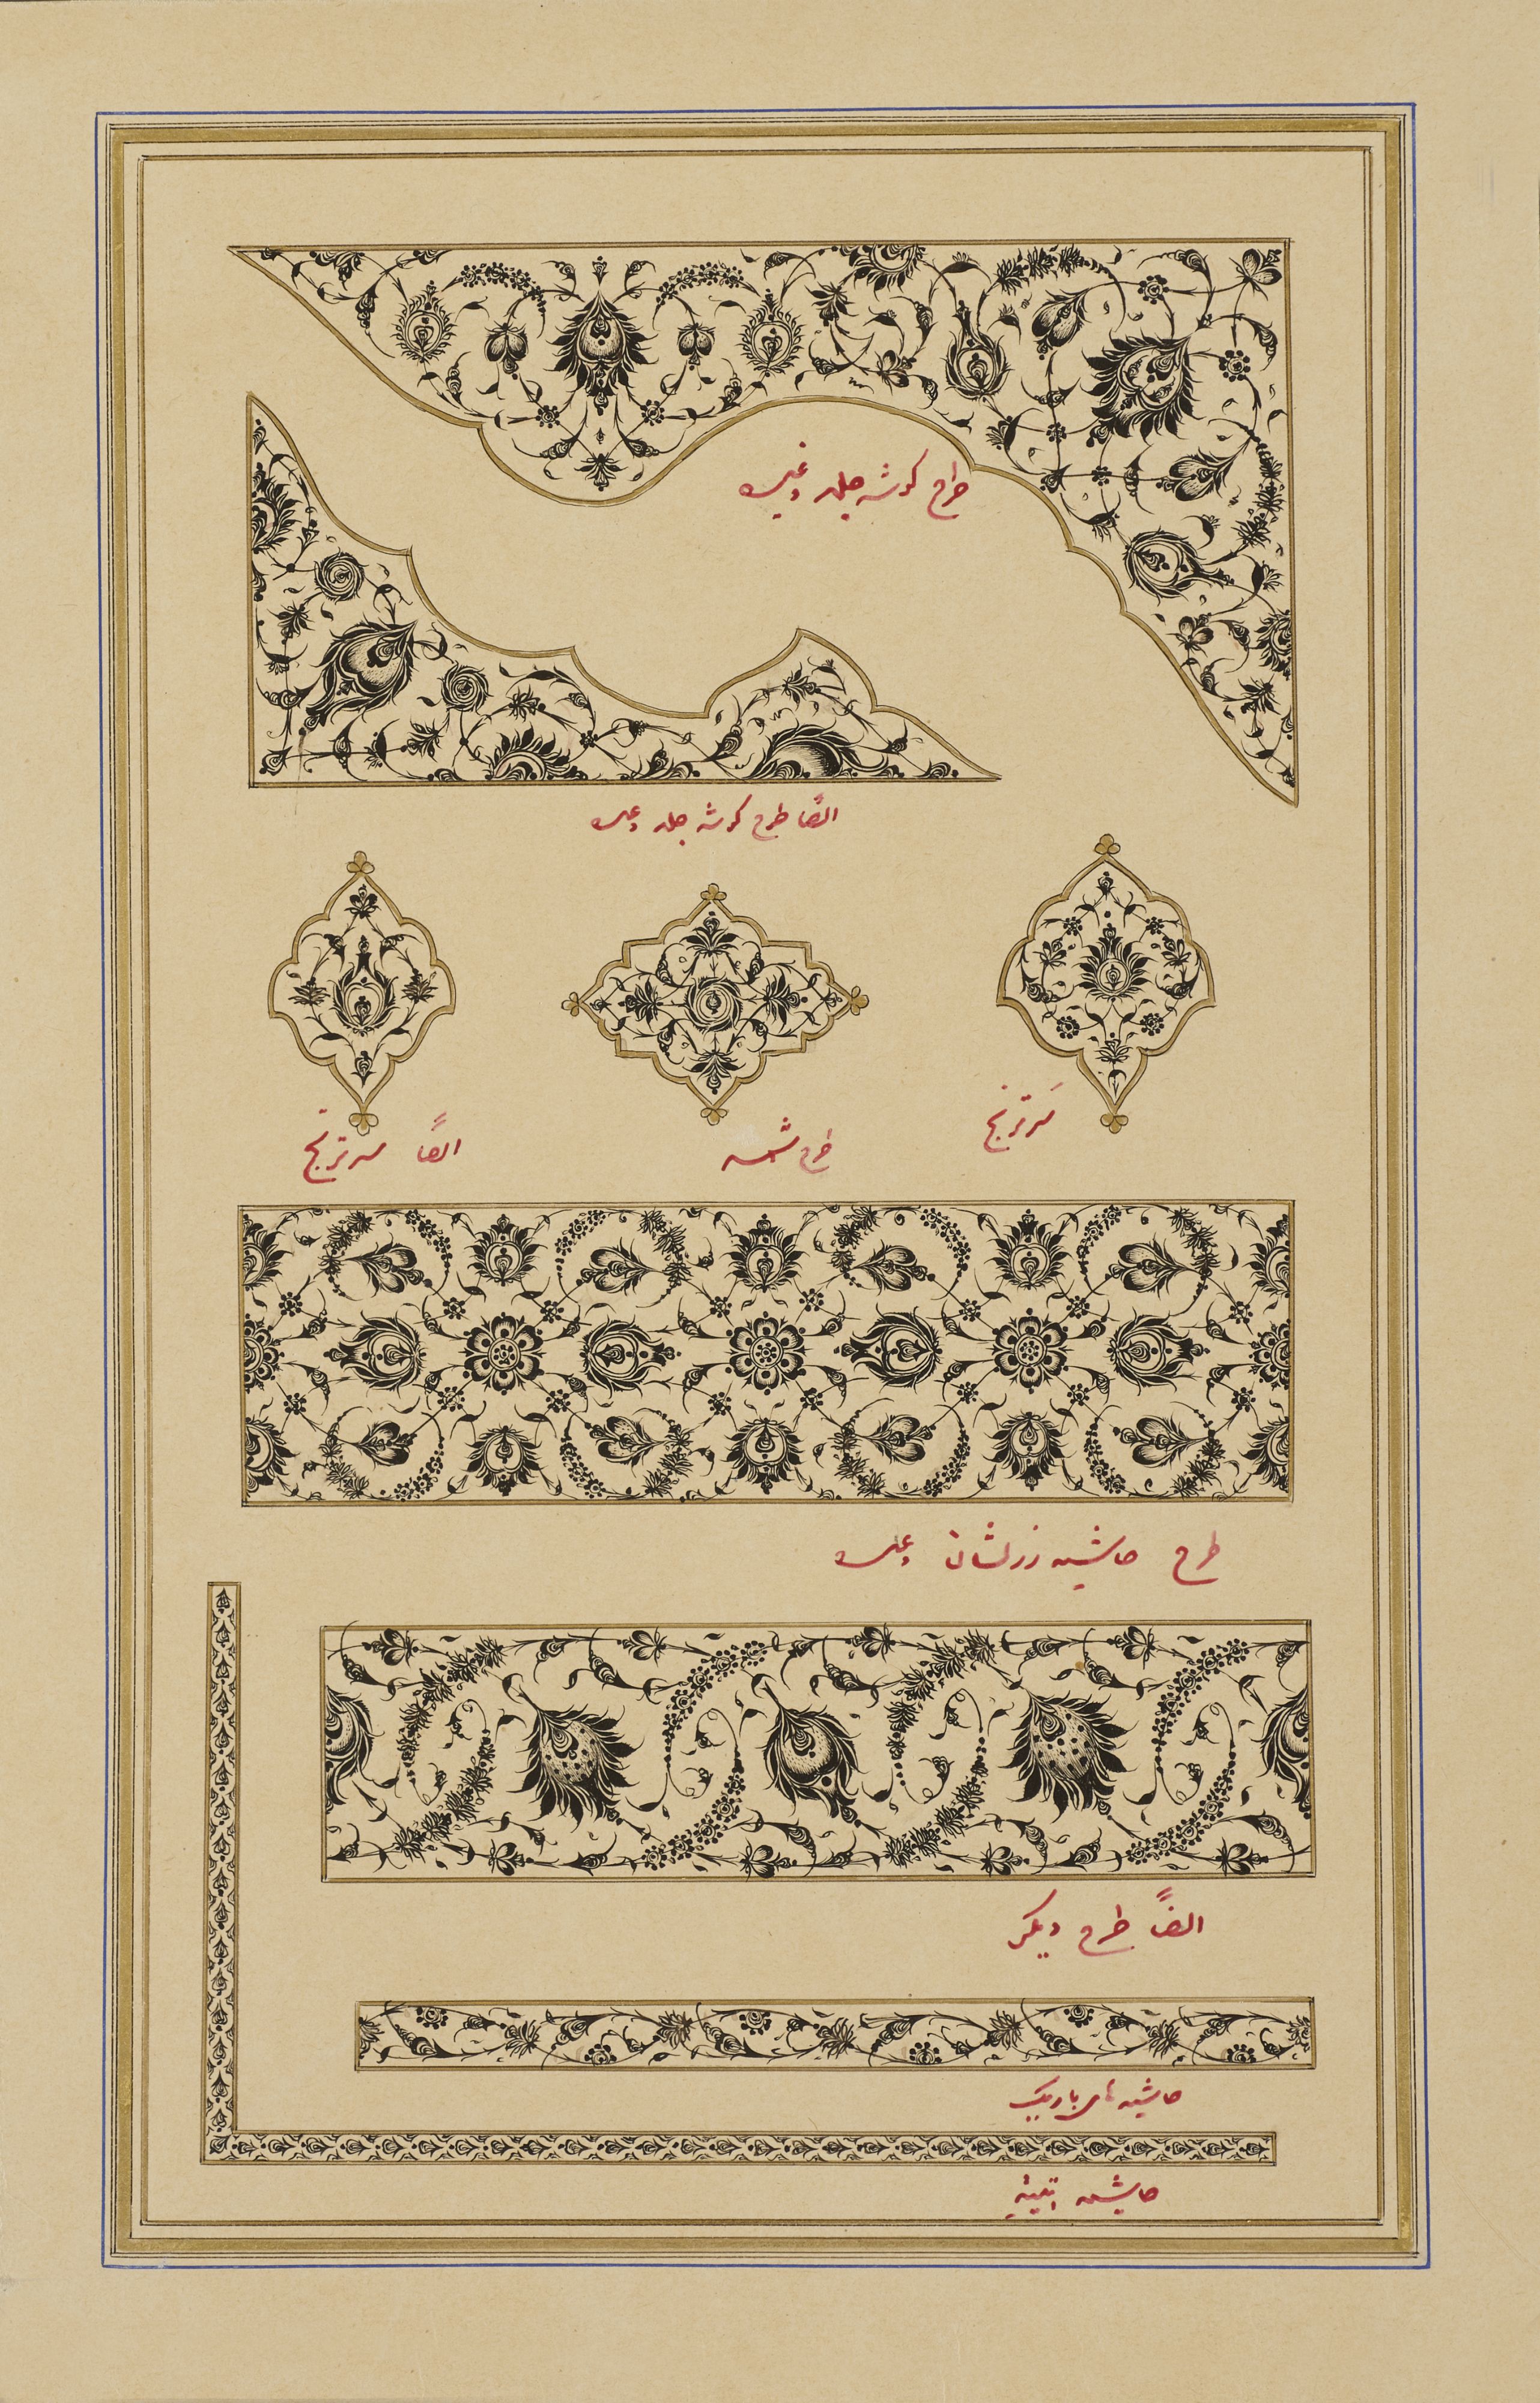 طرح گوشه جلد و غیره
ایضاً طرح گوشه جلد و غیره
سرترنج
طرح شمسه
ایضاً سرترنج
طرح حاشیه زرفشان و غیره
ایضاً طرح دیگر
حاشیه های باریک
حاشیه